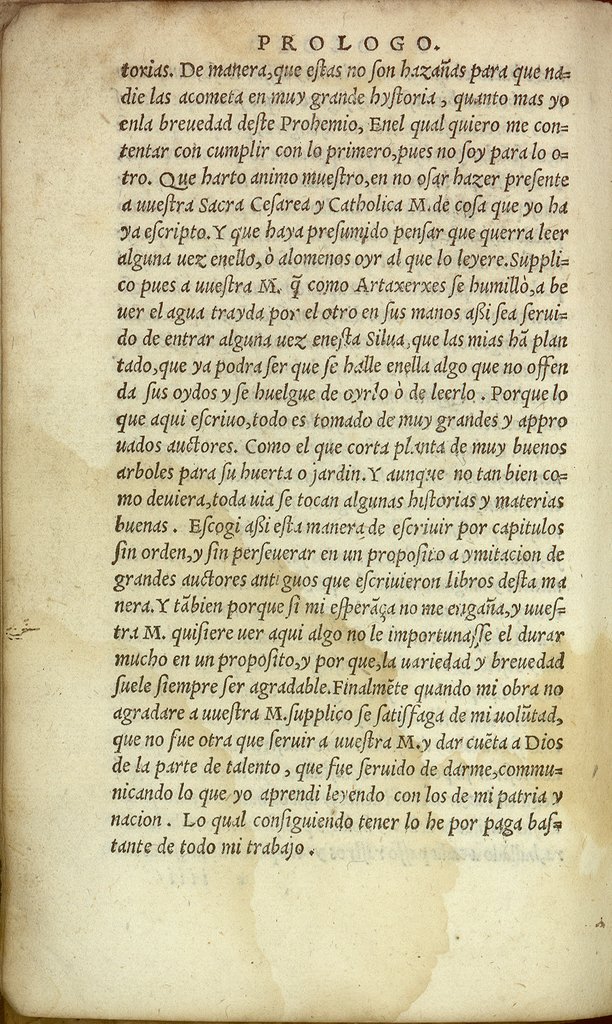 PROLOGO.
torias. De manera,que eſtas no ſon hazañas para que na=
die las acometa en muy grande hyſtoria , quanto mas yo
enla breuedad deſte Prohemio, Enel qual quiero me con=
tentar con cumplir con lo primero,pues no ſoy para lo o=
tro. Que harto animo mueſtro,en no oſar hazer preſente
a uueſtra Sacra Ceſarea y Catholica M.de coſa que yo ha
ya eſcripto.Y que haya preſumido penſar que querra leer
alguna uez enello,ò alomenos oyr al que lo leyere.Suppli=
co pues a uueſtra M. q̃ como Artaxerxes ſe humillò,a be
uer el agua trayda por el otro en ſus manos aßi ſea ſerui=
do de entrar alguna uez eneſta Silua,que las mias hã plan
tado,que ya podra ſer que ſe halle enella algo que no offen
da ſus oydos y ſe huelgue de oyrlo ò de leerlo . Porque lo
que aqui eſcriuo,todo es tomado de muy grandes y appro
uados auctores. Como el que corta planta de muy buenos
arboles para ſu huerta o jardin.Y aunque no tan bien co=
mo deuiera,toda uia ſe tocan algunas hiſtorias y materias
buenas . Eſcogi aßi eſta manera de eſcriuir por capitulos
ſin orden,y ſin perſeuerar en un propoſito a ymitacion de
grandes auctores antiguos que eſcriuieron libros deſta ma
nera.Y tãbien porque ſi mi eſperãça no me engaña,y uueſ=
tra M. quiſiere uer aqui algo no le importunaſſe el durar
mucho en un propoſito,y por que,la uariedad y breuedad
ſuele ſiempre ſer agradable.Finalmẽte quando mi obra no
agradare a uueſtra M.ſupplico ſe ſatiſfaga de mi uolũtad,
que no fue otra que ſeruir a uueſtra M.y dar cuẽta a Dios
de la parte de talento , que fue ſeruido de darme,commu=
nicando lo que yo aprendi leyendo con los de mi patria y
nacion . Lo qual conſiguiendo tener lo he por paga baſ=
tante de todo mi trabajo .